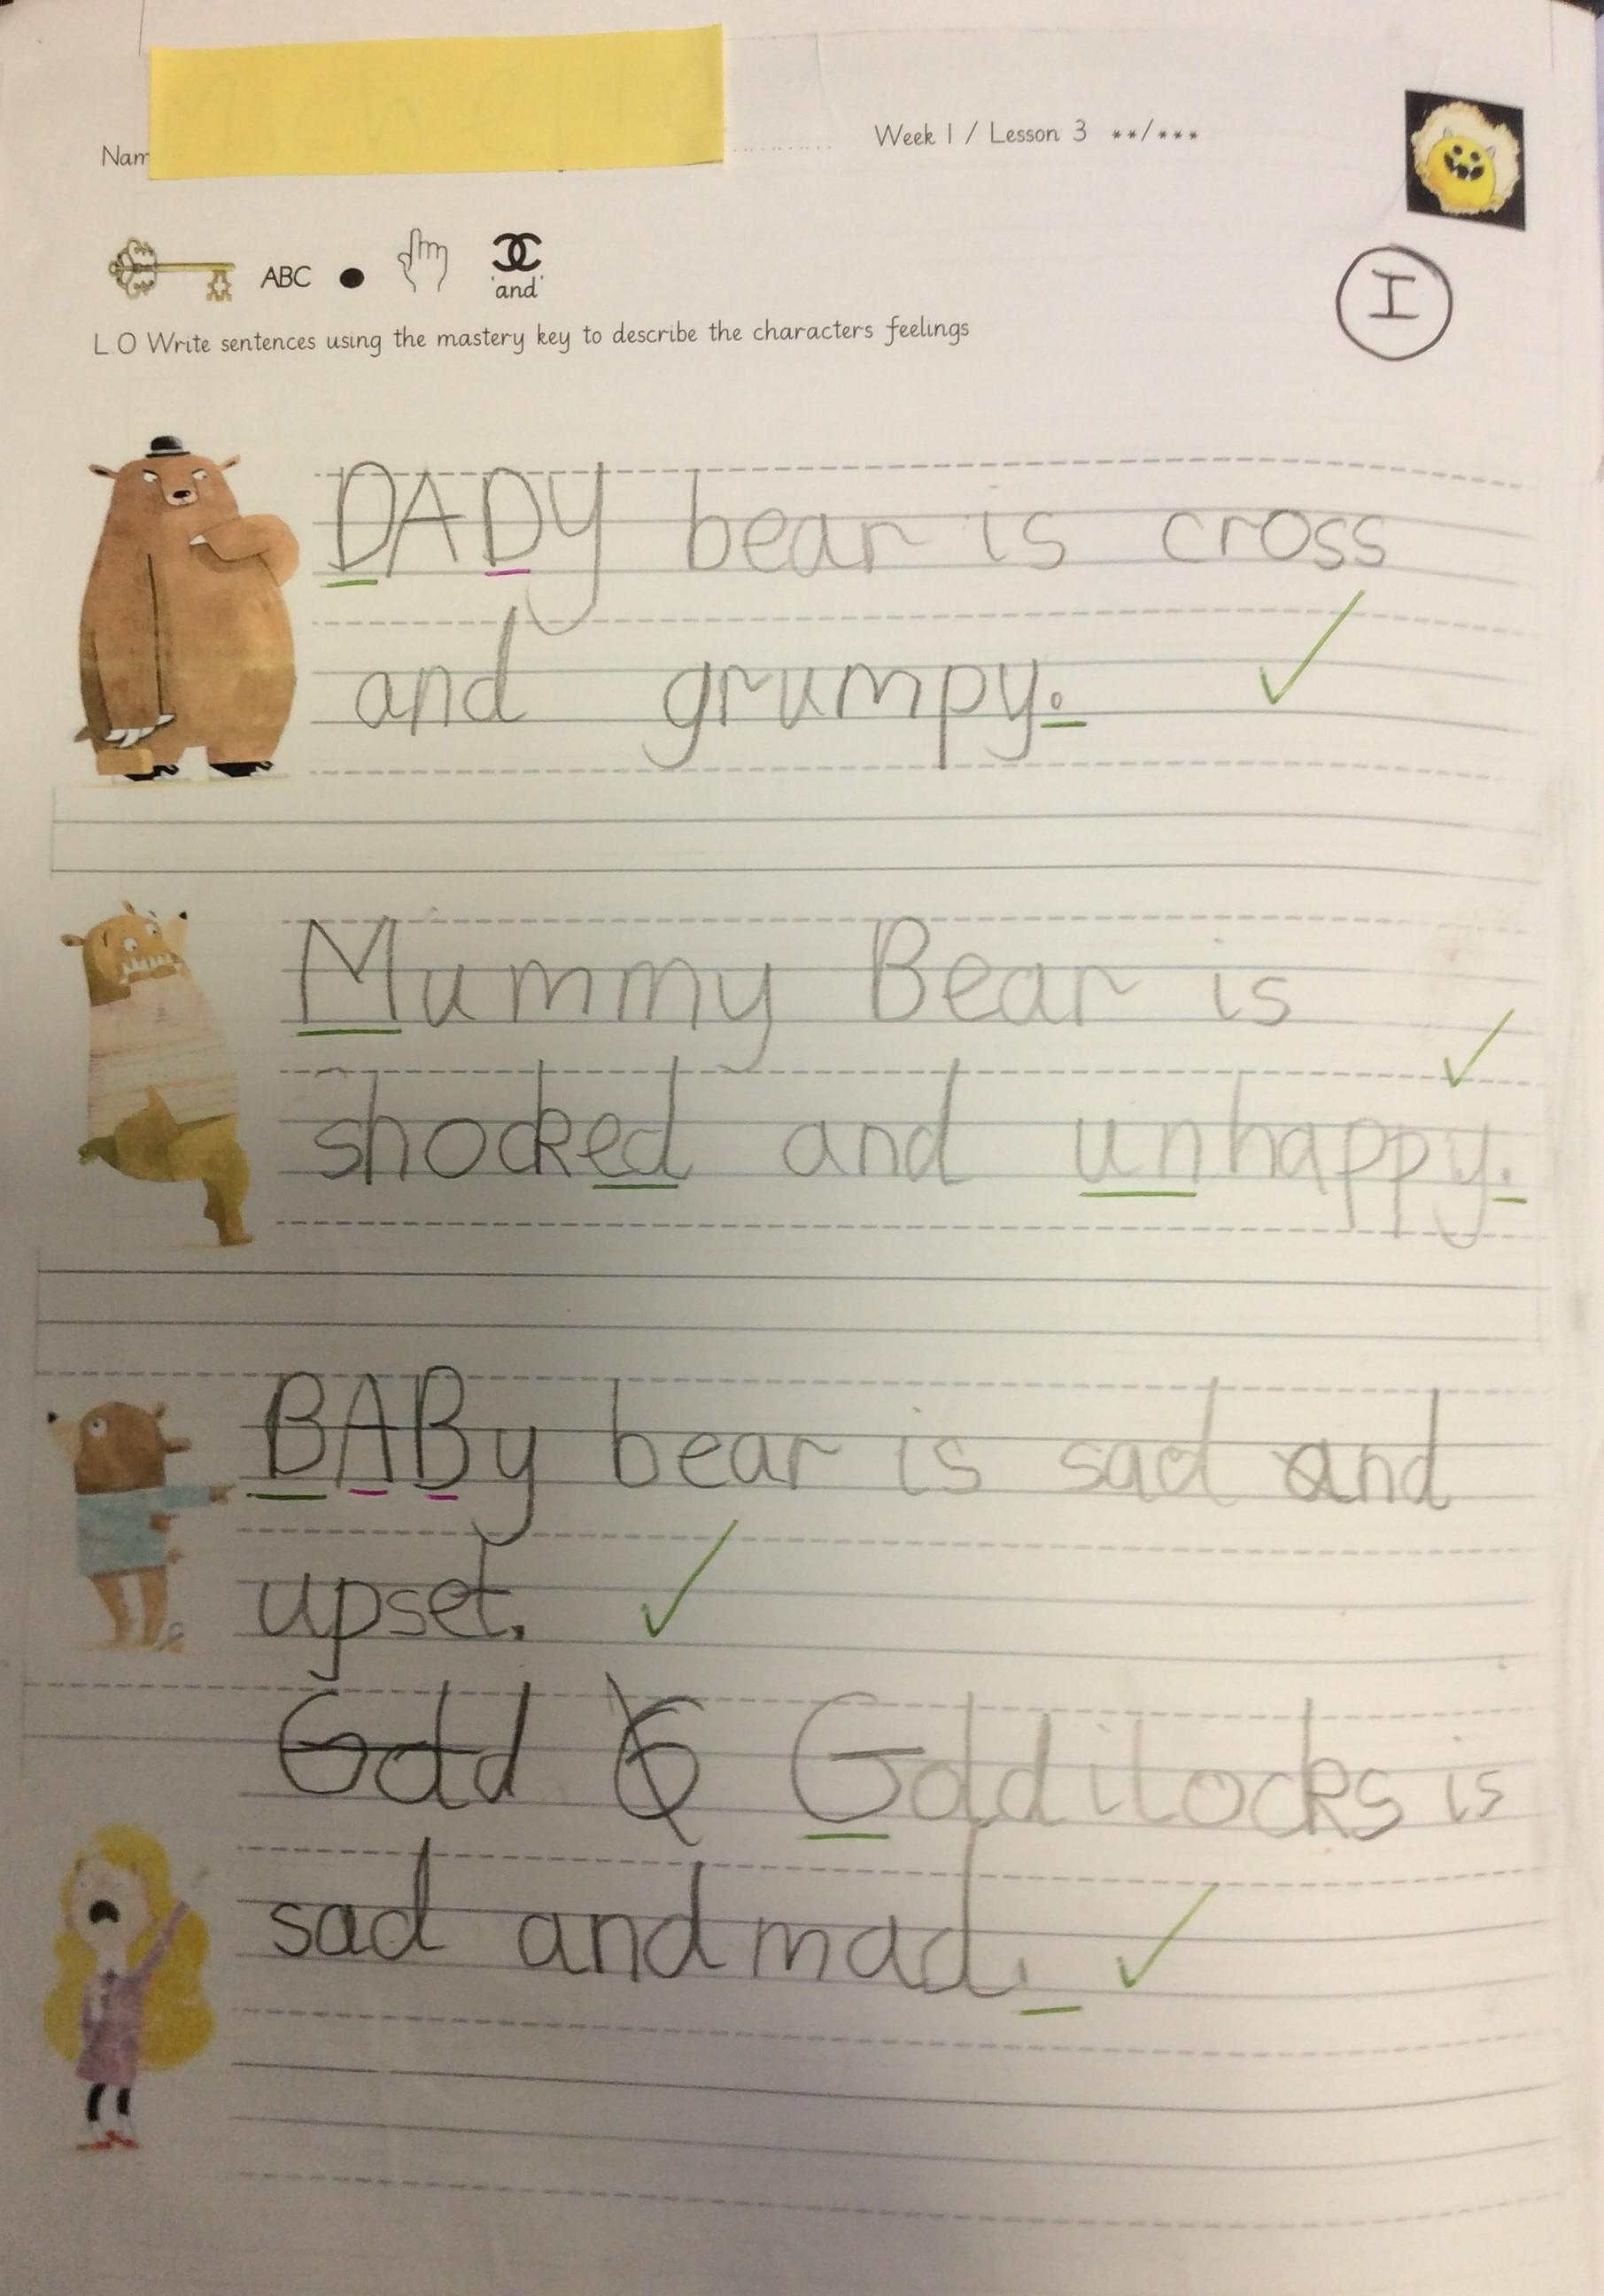 Nam
Week 1 / Lesson 3 **/***
ABC
'and'
I
L.O Write sentences using the mastery key to describe the characters feelings
DADy bear is cross
and grumpy.
Mummy Bear is
shocked and unhappy.
BABy bear is sad and
upset.
Gold G Goldilocks is
sad and mad.